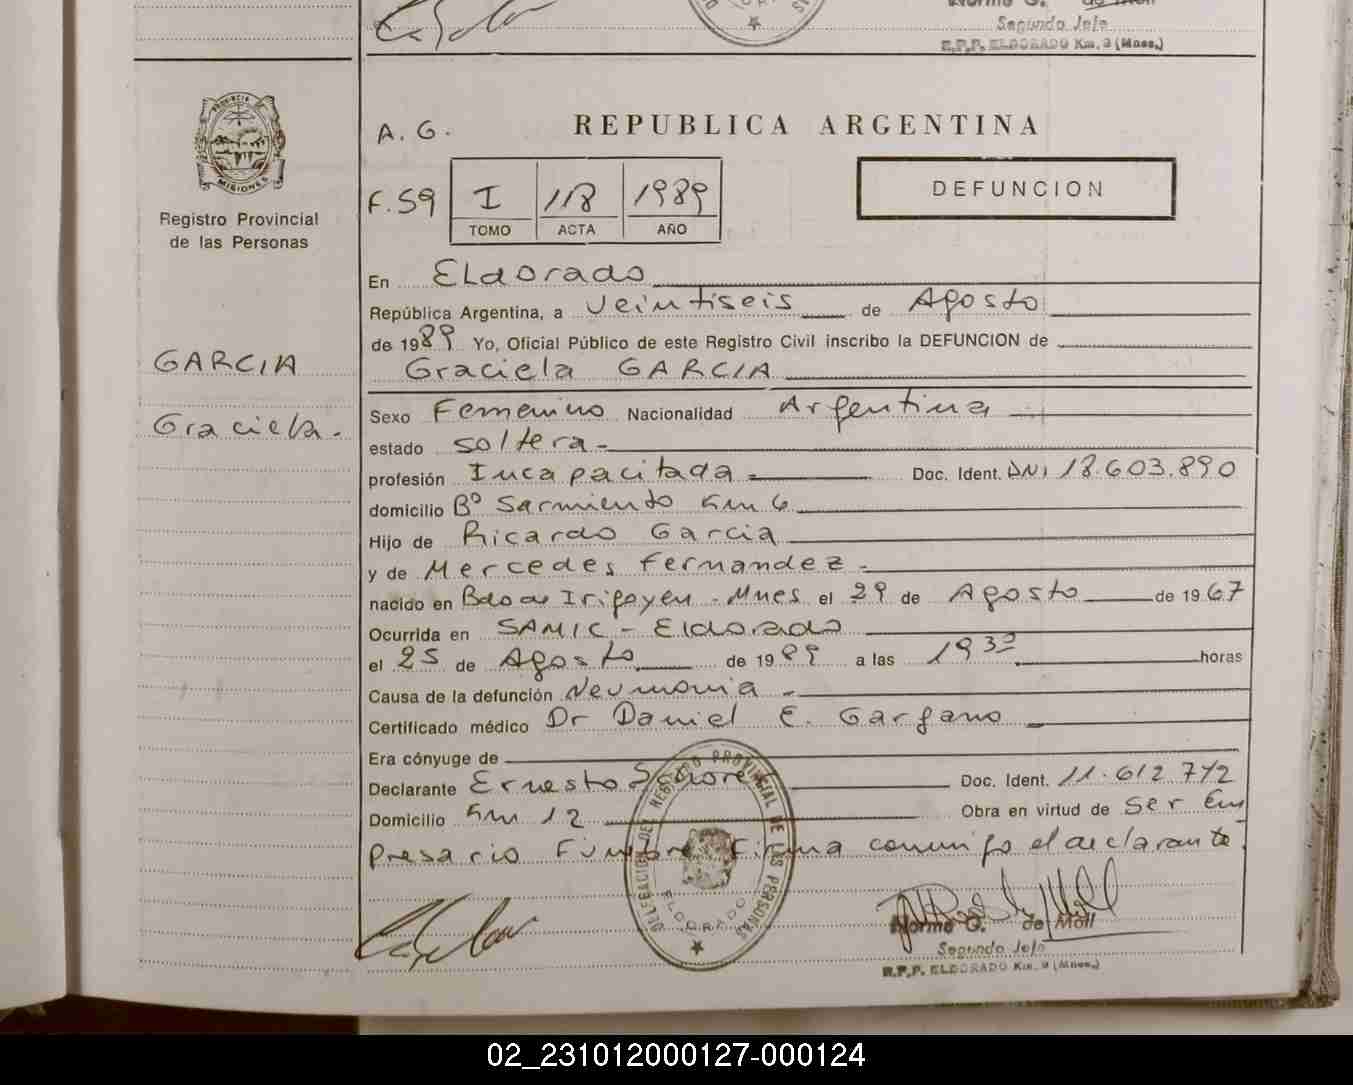 Segundo Jefe
R.P.P. ELDORADO Km. 9 (Mnes.)
PROVINCIA
MISIONES
Registro Provincial
de las Personas
GARCIA
Graciela.-
A. G.
REPUBLICA ARGENTINA
F. 59
I
118
1989
TOMO
ACTA
AÑO
DEFUNCION
En ELdorado
República Argentina, a veintiseis de Agosto
de 1989 Yo, Oficial Público de este Registro Civil inscribo la DEFUNCION de
Graciela GARCIA
Sexo Femenino Nacionalidad Argentina
estado soltera -
profesión Incapacitada Doc. Ident. DNI 18.603.890
domicilio Bº Sarmiento Km 6
Hijo de Ricardo Garcia
y de Mercedes Fernandez -
nacido en Bdo de Irigoyen - Mnes el 29 de Agosto de 1967
Ocurrida en SAMIC - Eldorado
el 25 de Agosto de 1989 a las 19 30 horas
Causa de la defunción Neumonia -
Certificado médico Dr Daniel E. Gargano
Era cónyuge de
Declarante Ernesto Doc. Ident. 11.612 742
Domicilio Km 12 Obra en virtud de ser Em
presario Funebre Firma conmigo el declarante
DELEGACION DEL REGISTRO PROVINCIAL DE LAS PERSONAS
ELDORADO
Norma G. de Moll
Segundo Jefe
R.P.P. ELDORADO Km. 9 (Mnes.)
02_231012000127-000124